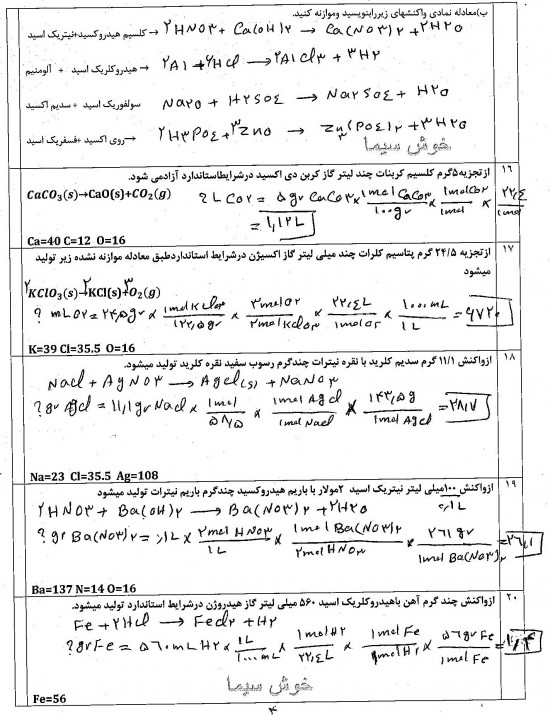 ب)معادله نمادی واکنشهای زیررابنویسید وموازنه کنید.
کلسیم هیدروکسید+نیتریک اسید → ۲HNO۳ + Ca(OH)۲ → Ca(NO۳)۲ + ۲H۲O
هیدروکلریک اسید + آلومنیم → ۲Al + ۶HCl → ۲AlCl۳ + ۳H۲
سولفوریک اسید + سدیم اکسید Na۲O + H۲SO۴ → Na۲SO۴ + H۲O
روی اکسید + فسفریک اسید → ۲H۳PO۴ + ۳ZnO → Zn۳(PO۴)۲ + ۳H۲O
خوش سیما
۱۶ ازتجزیه ۵گرم کلسیم کربنات چند لیتر گاز کربن دی اکسید درشرایطاستاندارد آزادمی شود.
CaCO3(s)→CaO(s)+CO2(g) ? L CO۲ = ۵gr CaCO۳ × ۱mol CaCO۳/۱۰۰gr × ۱mol CO۲/۱mol × ۲۲,۴/۱mol
= ۱,۱۲L
Ca=40 C=12 O=16
۱۷ ازتجزیه ۲۴/۵ گرم پتاسیم کلرات چند میلی لیتر گاز اکسیژن درشرایط استانداردطبق معادله موازنه نشده زیر تولید
میشود
۲KClO3(s)→۲KCl(s)+۳O2(g)
? mL O۲ = ۲۴,۵gr × ۱mol KClO۳/۱۲۲,۵gr × ۳mol O۲/۲mol KClO۳ × ۲۲,۴L/۱mol O۲ × ۱۰۰۰mL/۱L = ۶۷۲۰
K=39 Cl=35.5 O=16
۱۸ ازواکنش ۱۱/۱ گرم سدیم کلرید با نقره نیترات چندگرم رسوب سفید نقره کلرید تولید میشود.
NaCl + AgNO۳ → AgCl(s) + NaNO۳
? gr AgCl = ۱۱,۱gr NaCl × ۱mol/۵۸,۵ × ۱mol AgCl/۱mol NaCl × ۱۴۳,۵g/۱mol AgCl = ۲۸,۷
Na=23 Cl=35.5 Ag=108
۱۹ ازواکنش ۱۰۰میلی لیتر نیتریک اسید ۲مولار با باریم هیدروکسید چندگرم باریم نیترات تولید میشود
۲HNO۳ + Ba(OH)۲ → Ba(NO۳)۲ + ۲H۲O ۰,۱L
? gr Ba(NO۳)۲ = ۰,۱L × ۲mol HNO۳/۱L × ۱mol Ba(NO۳)۲/۲mol HNO۳ × ۲۶۱gr/۱mol Ba(NO۳)۲ = ۲۶,۱
Ba=137 N=14 O=16
۲۰ ازواکنش چند گرم آهن باهیدروکلریک اسید ۵۶۰ میلی لیتر گاز هیدروژن درشرایط استاندارد تولید میشود.
Fe + ۲HCl → FeCl۲ + H۲
? gr Fe = ۵۶۰mL H۲ × ۱L/۱۰۰۰mL × ۱mol H۲/۲۲,۴L × ۱mol Fe/۱mol H۲ × ۵۶gr Fe/۱mol Fe = ۱,۴
خوش سیما
Fe=56
۴